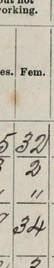 but not
working.
es. Fem.
5 32
3 2
" "
34
3